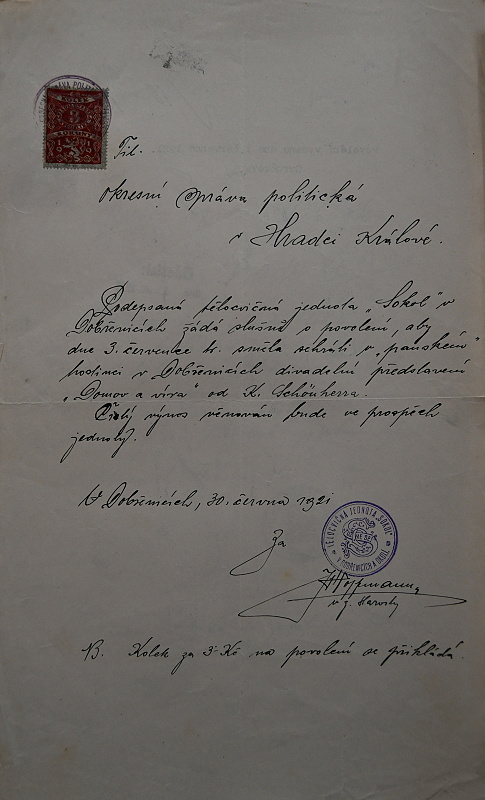 KOLEK
3
Tit.
okresní správa politická
v Hradci Králové.
Podepsaná tělocvičná jednota „Sokol" v
Dobřenicích žádá slušně o povolení, aby
dne 3. července tr. směla sehráti v „panském"
hostinci v Dobřenicích divadelní představení
„Domov a víra" od K. Schönherra.
Čistý výnos věnován bude ve prospěch
jednoty.
V Dobřenicích, 30. června 1921
Za
TĚLOCVIČNÁ JEDNOTA „SOKOL"
V DOBŘENICÍCH A OKOLÍ
Hoffmann
NB. Kolek za 3 Kč na povolení se přikládá.